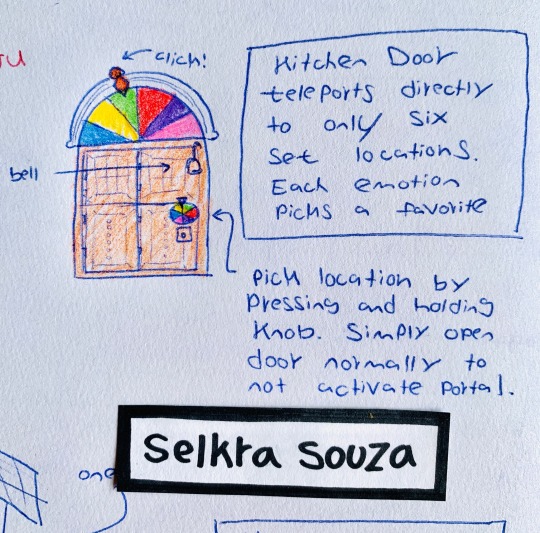 TU
click!
bell
Kitchen Door
teleports directly
to only six
set locations.
Each emotion
picks a favorite
Pick location by
pressing and holding
knob. Simply open
door normally to
not activate portal.
Selkra Souza
one